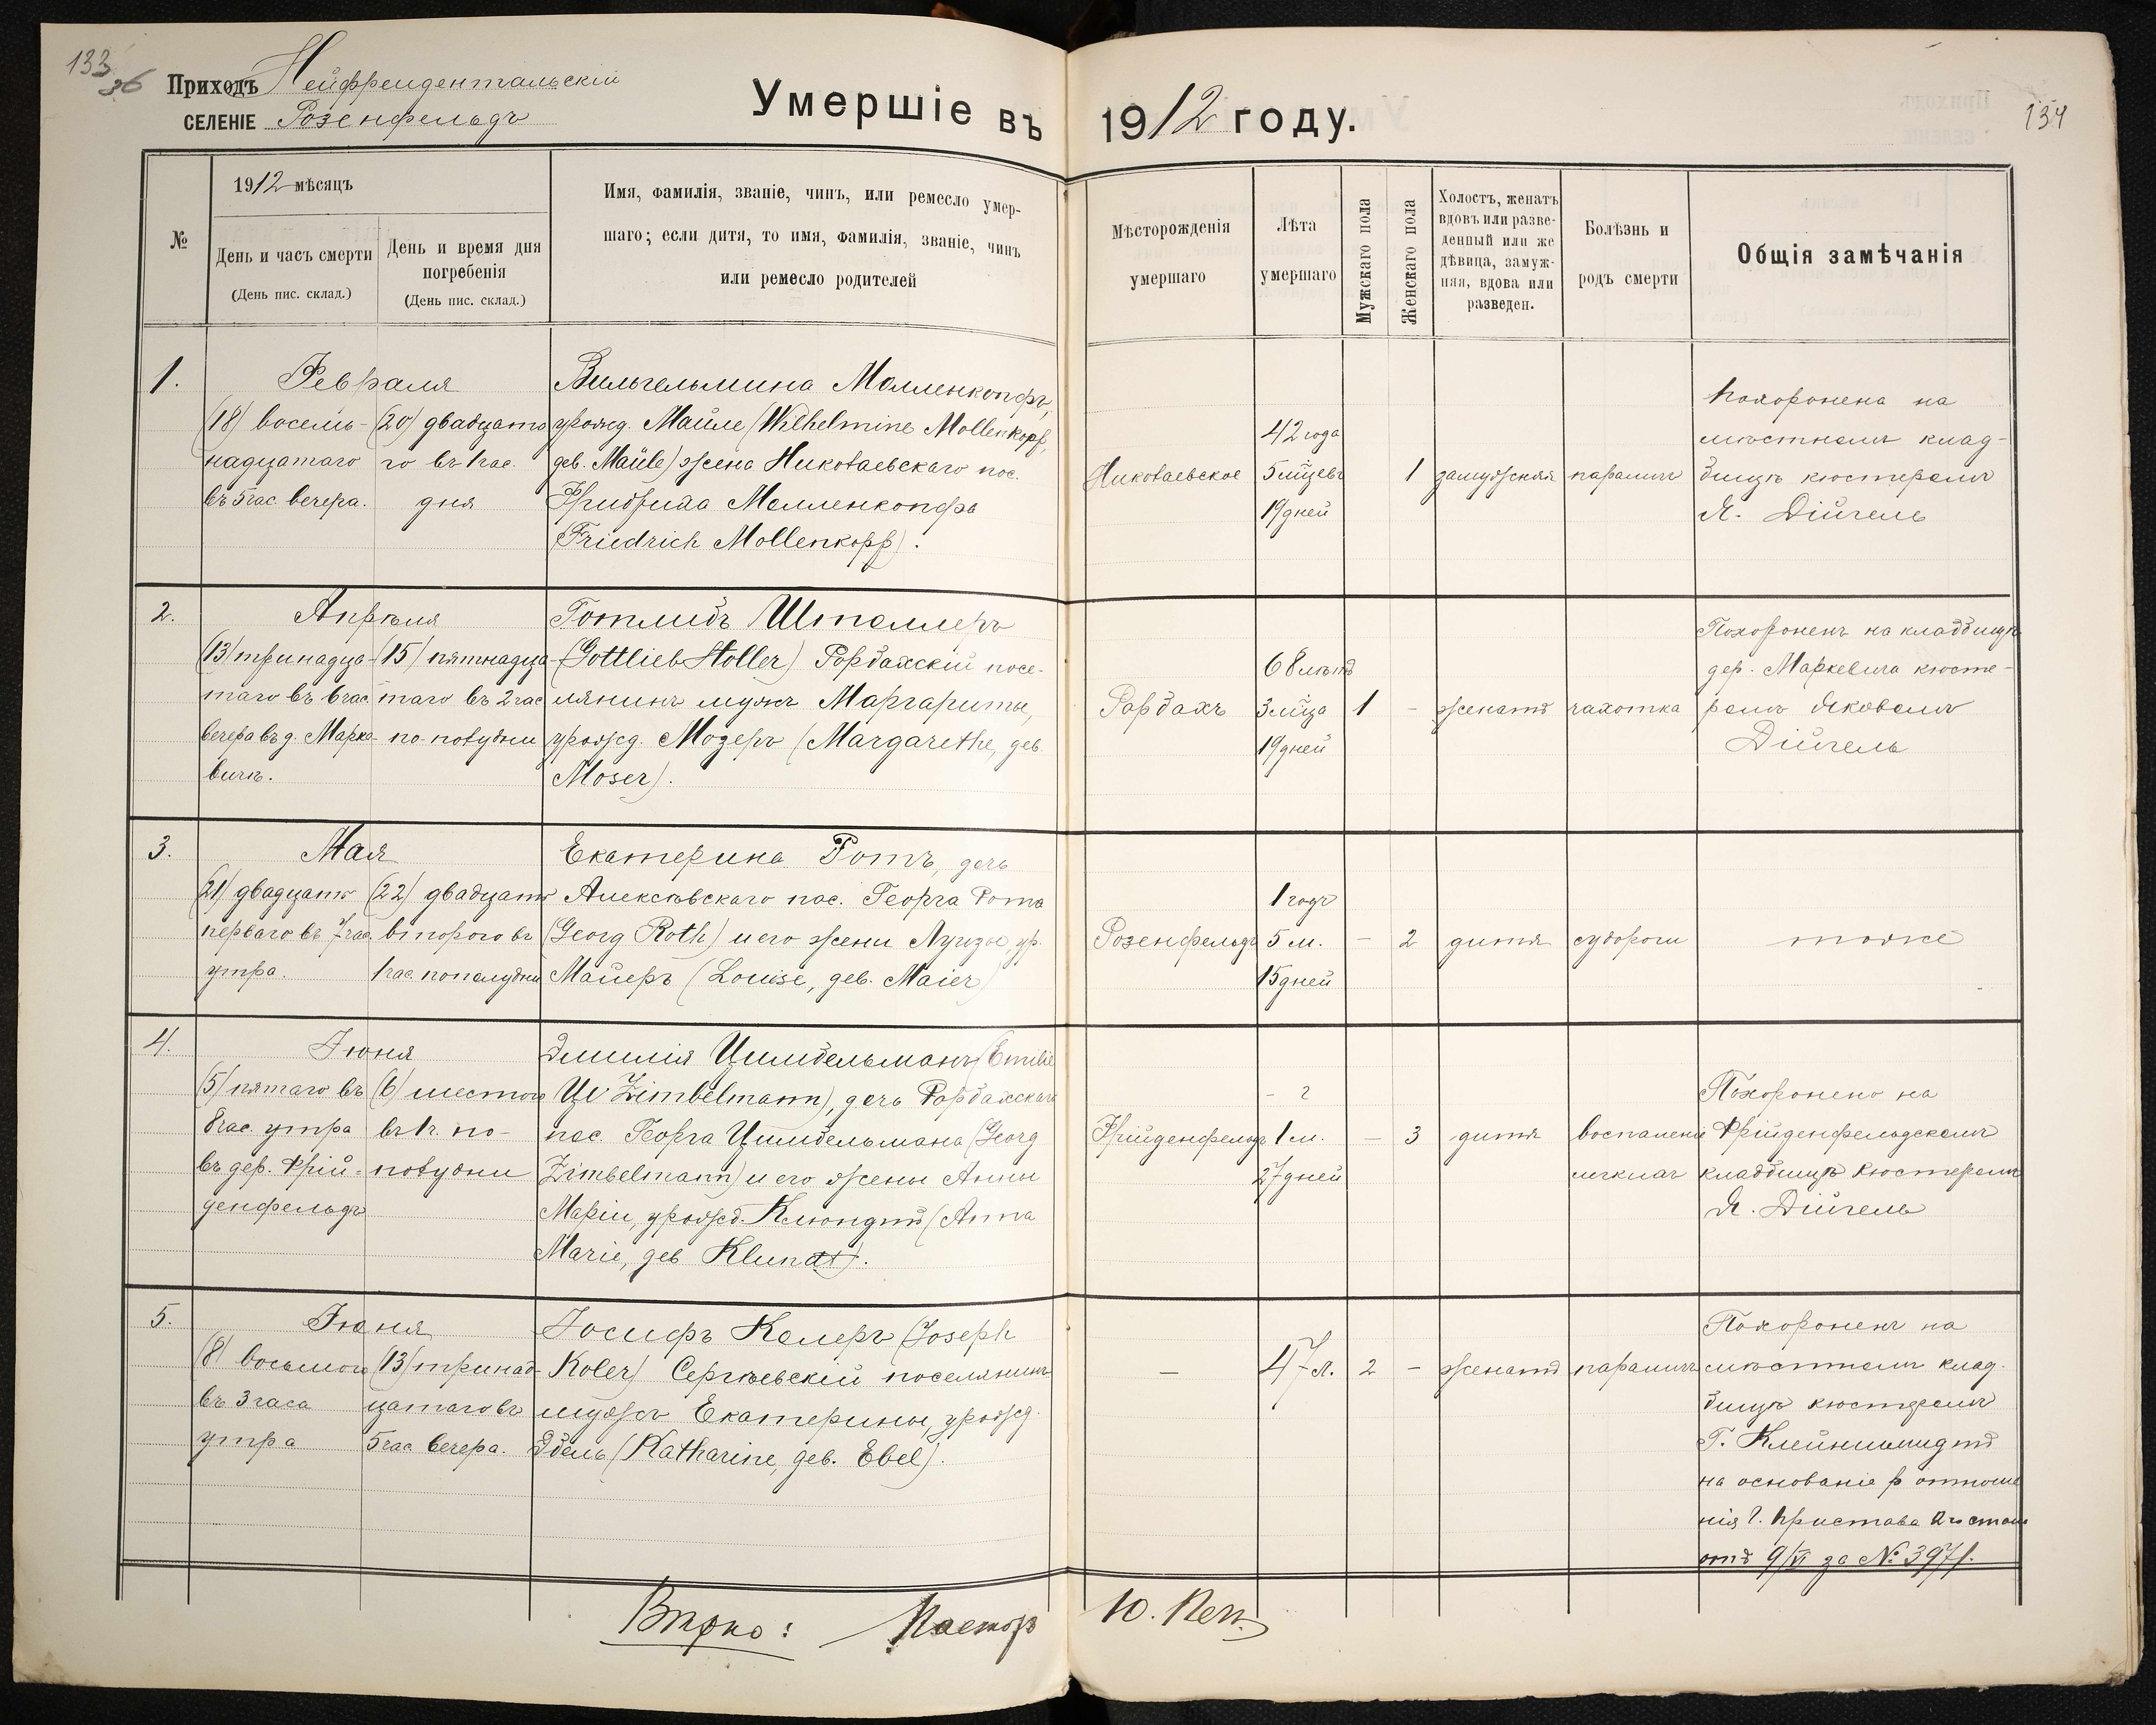 133
36
Приходъ Нейфреидентальскій
СЕЛЕНІЕ Розенфельдъ
Умершіе въ 1912 году.
134
№
1912 мѣсяцъ
День и часъ смерти
(День пис. склад.)
День и время дня
погребенія
(День пис. склад.)
Имя, фамилія, званіе, чинъ, или ремесло умер-
шаго; если дитя, то имя, фамилія, званіе, чинъ
или ремесло родителей
Мѣсторожденія
умершаго
Лѣта
умершаго
Мужскаго пола
Женскаго пола
Холостъ, женатъ
вдовъ или разве-
денный или же
дѣвица, замуж-
няя, вдова или
разведен.
Болѣзнь и
родъ смерти
Общія замѣчанія
1.
Февраля
(18) восем-
надцатаго
въ 5 час. вечера.
(20) двадцата
го въ 1 час.
дня
Вильгельмина Молленкопфъ,
урожд. Майле (Wilhelmine Mollenkopf,
geb. Maüle) жена Николаевскаго пос.
Фридриха Молленкопфа
(Friedrich Mollenkopf).
Николаевское
42 года
5 мѣсцевъ
19 дней
1
замужняя
параличъ
Похоронена на
мѣстномъ клад-
бищѣ кюстеромъ
Я. Дійгель
2.
Апрѣля
(13) тринадца-
таго въ 6 час.
вечера въ д. Марке-
вича.
(15) пятнадца
таго въ 2 час
по-полудни
Готлибъ Штоллеръ
(Gottlieb Stoller) Рорбахскій посе-
лянинъ мужъ Маргариты,
урожд. Мозеръ (Margarethe, geb.
Moser).
Рорбахъ
68 лѣтъ
3 мѣца
19 дней
1
-
женатъ
чахотка
Похороненъ на кладбищѣ
дер. Маркевича кюсте-
ромъ Яковомъ
Дійгель
3.
Мая
(21) двадцать
перваго въ 7 час.
утра.
(22) двадцать
второго въ
1 час. пополудни
Екатерина Ротъ, дочь
Алексѣевскаго пос. Георга Рота
(Georg Roth) и его жены Луизы, ур.
Майеръ (Louise, geb. Maier)
Розенфельдъ
1 годъ
5 м.
15 дней
-
2
дитя
судороги
тоже
4.
Іюня
(5) пятаго въ
8 час. утра
въ дер. Фрій-
денфельдъ
(6) шестого
въ 1 ч. по-
полудни
Эмилія Цимбельманъ (Emilie
Zimbelmann), дочь Рорбахскаго
пос. Георга Цимбельмана (Georg
Zimbelmann) и его жены Анны
Маріи, урожд. Клюндтъ (Anna
Marie, geb Klundt).
Фрійденфельдъ
- г
1 м.
27 дней
-
3
дитя
воспаленіе
легкихъ
Похоронено на
Фрійденфельдскомъ
кладбищѣ кюстеромъ
Я. Дійгель
5.
Іюня
(8) восьмого
въ 3 часа
утра
(13) тринад-
цатаго въ
5 час. вечера.
Іосифъ Колеръ (Joseph
Koler) Сергѣевскій поселянинъ
мужъ Екатерины, урожд.
Эбель (Katharine, geb. Ebel).
-
47 л.
2
-
женатъ
параличъ
Похороненъ на
мѣстномъ клад-
бищѣ кюстеромъ
Г. Клейншмидтъ
на основаніе отноше
нія Г. пристава 2го стана
отъ 9/VI за № 3971.
Вѣрно: Пасторъ